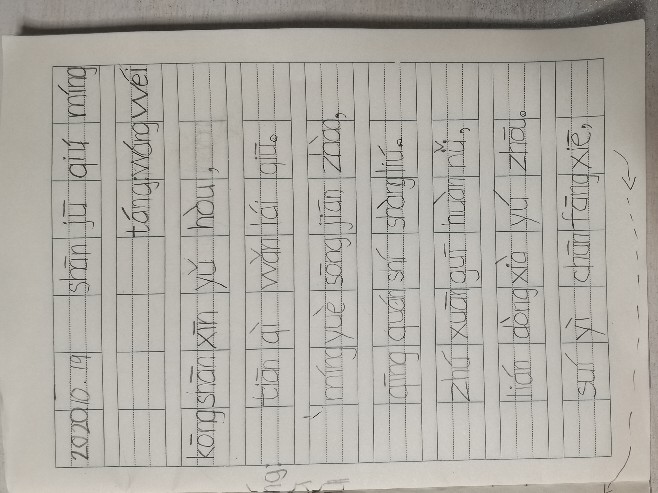 2020.10.19 shān jū qiū míng
táng wáng wéi
kōng shān xīn yǔ hòu,
tiān qì wǎn lái qiū。
míng yuè sōng jiān zhào,
qīng quán shí shàng liú。
zhú xuān guī huàn nǚ,
lián dòng xià yú zhōu。
suí yì chūn fāng xiē,